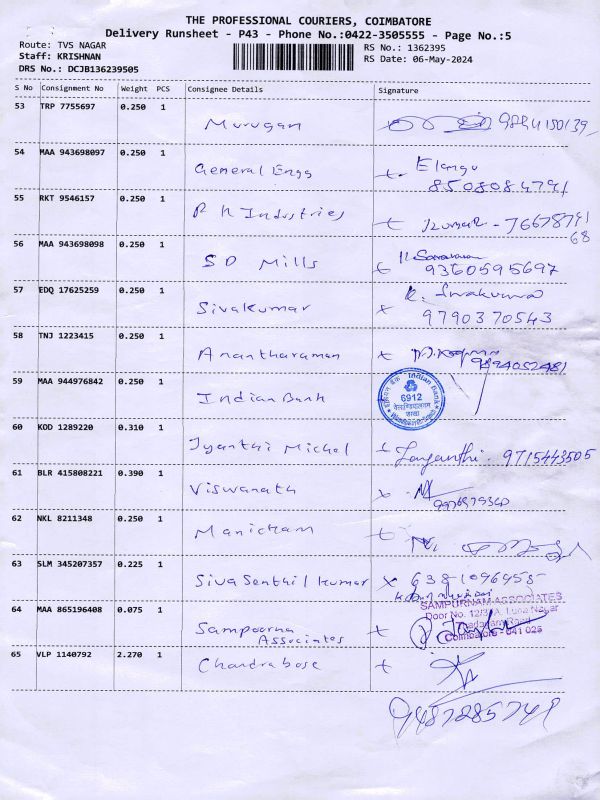 THE PROFESSIONAL COURIERS, COIMBATORE
Delivery Runsheet - P43 - Phone No.:0422-3505555 - Page No.:5
Route: TVS NAGAR
RS No.: 1362395
Staff: KRISHNAN
RS Date: 06-May-2024
DRS No.: DCJB136239505
S No Consignment No Weight PCS Consignee Details Signature
53 TRP 7755697 0.250 1
Murugan 9884150139
54 MAA 943698097 0.250 1
General Engg Elango
8508084791
55 RKT 9546157 0.250 1
R K Industries Kumar - 76678791
68
56 MAA 943698098 0.250 1
S D Mills K Saravanan
9360595697
57 EDQ 17625259 0.250 1
Sivakumar K. Sivakumar
9790370543
58 TNJ 1223415 0.250 1
Anantharaman 9894052481
59 MAA 944976842 0.250 1
Indian Bank Indian Bank
6912
60 KOD 1289220 0.310 1
Jyanthi Michel Jayanthi. 9715443505
61 BLR 415808221 0.390 1
Viswanath
62 NKL 8211348 0.250 1
Manickam
63 SLM 345207357 0.225 1
Siva Senthil kumar
64 MAA 865196408 0.075 1
SAMPURNAM ASSOCIATES
Sampoorna
Associates
Coimbatore - 641 025
65 VLP 1140792 2.270 1
Chandrabose
9487285748